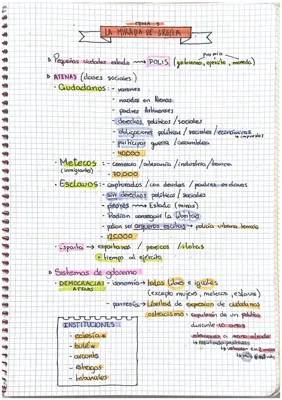 TEMA 3
LA MIRADA DE GRECIA
propio
Pequeñas ciudades estado → POLIS (gobierno, ejército, moneda)
ATENAS (clases sociales)
- Ciudadanos: - varones
- nacidos en Atenas
- padres Atenienses
- derechos políticos / sociales
- obligaciones políticas / sociales / económicas
impuestos
- participar guerra / asambleas
- 40.000
- Metecos: - comercio / artesanía / industria / banca
(inmigrantes)
- 70.000
- Esclavos: - capturados / con deudas / padres esclavos
- sin derechos políticos / sociales
- Estado (minas)
- Podían conseguir la libertad
- podían ser arqueros escitas → policía urbana
Esparta → espartanos / periecos / ilotas
+ tiempo al ejército
Sistemas de gobierno
- DEMOCRACIAS - isonomía → todos libres e iguales
ATENAS
(excepto mujeres, metecos, esclavos)
- parresía → libertad de expresión de ciudadanos
- ostracismo → expulsión de un político
durante 10 años
INSTITUCIONES
- eclesía
- bulé
- arconte
- estrategas
- tribunales